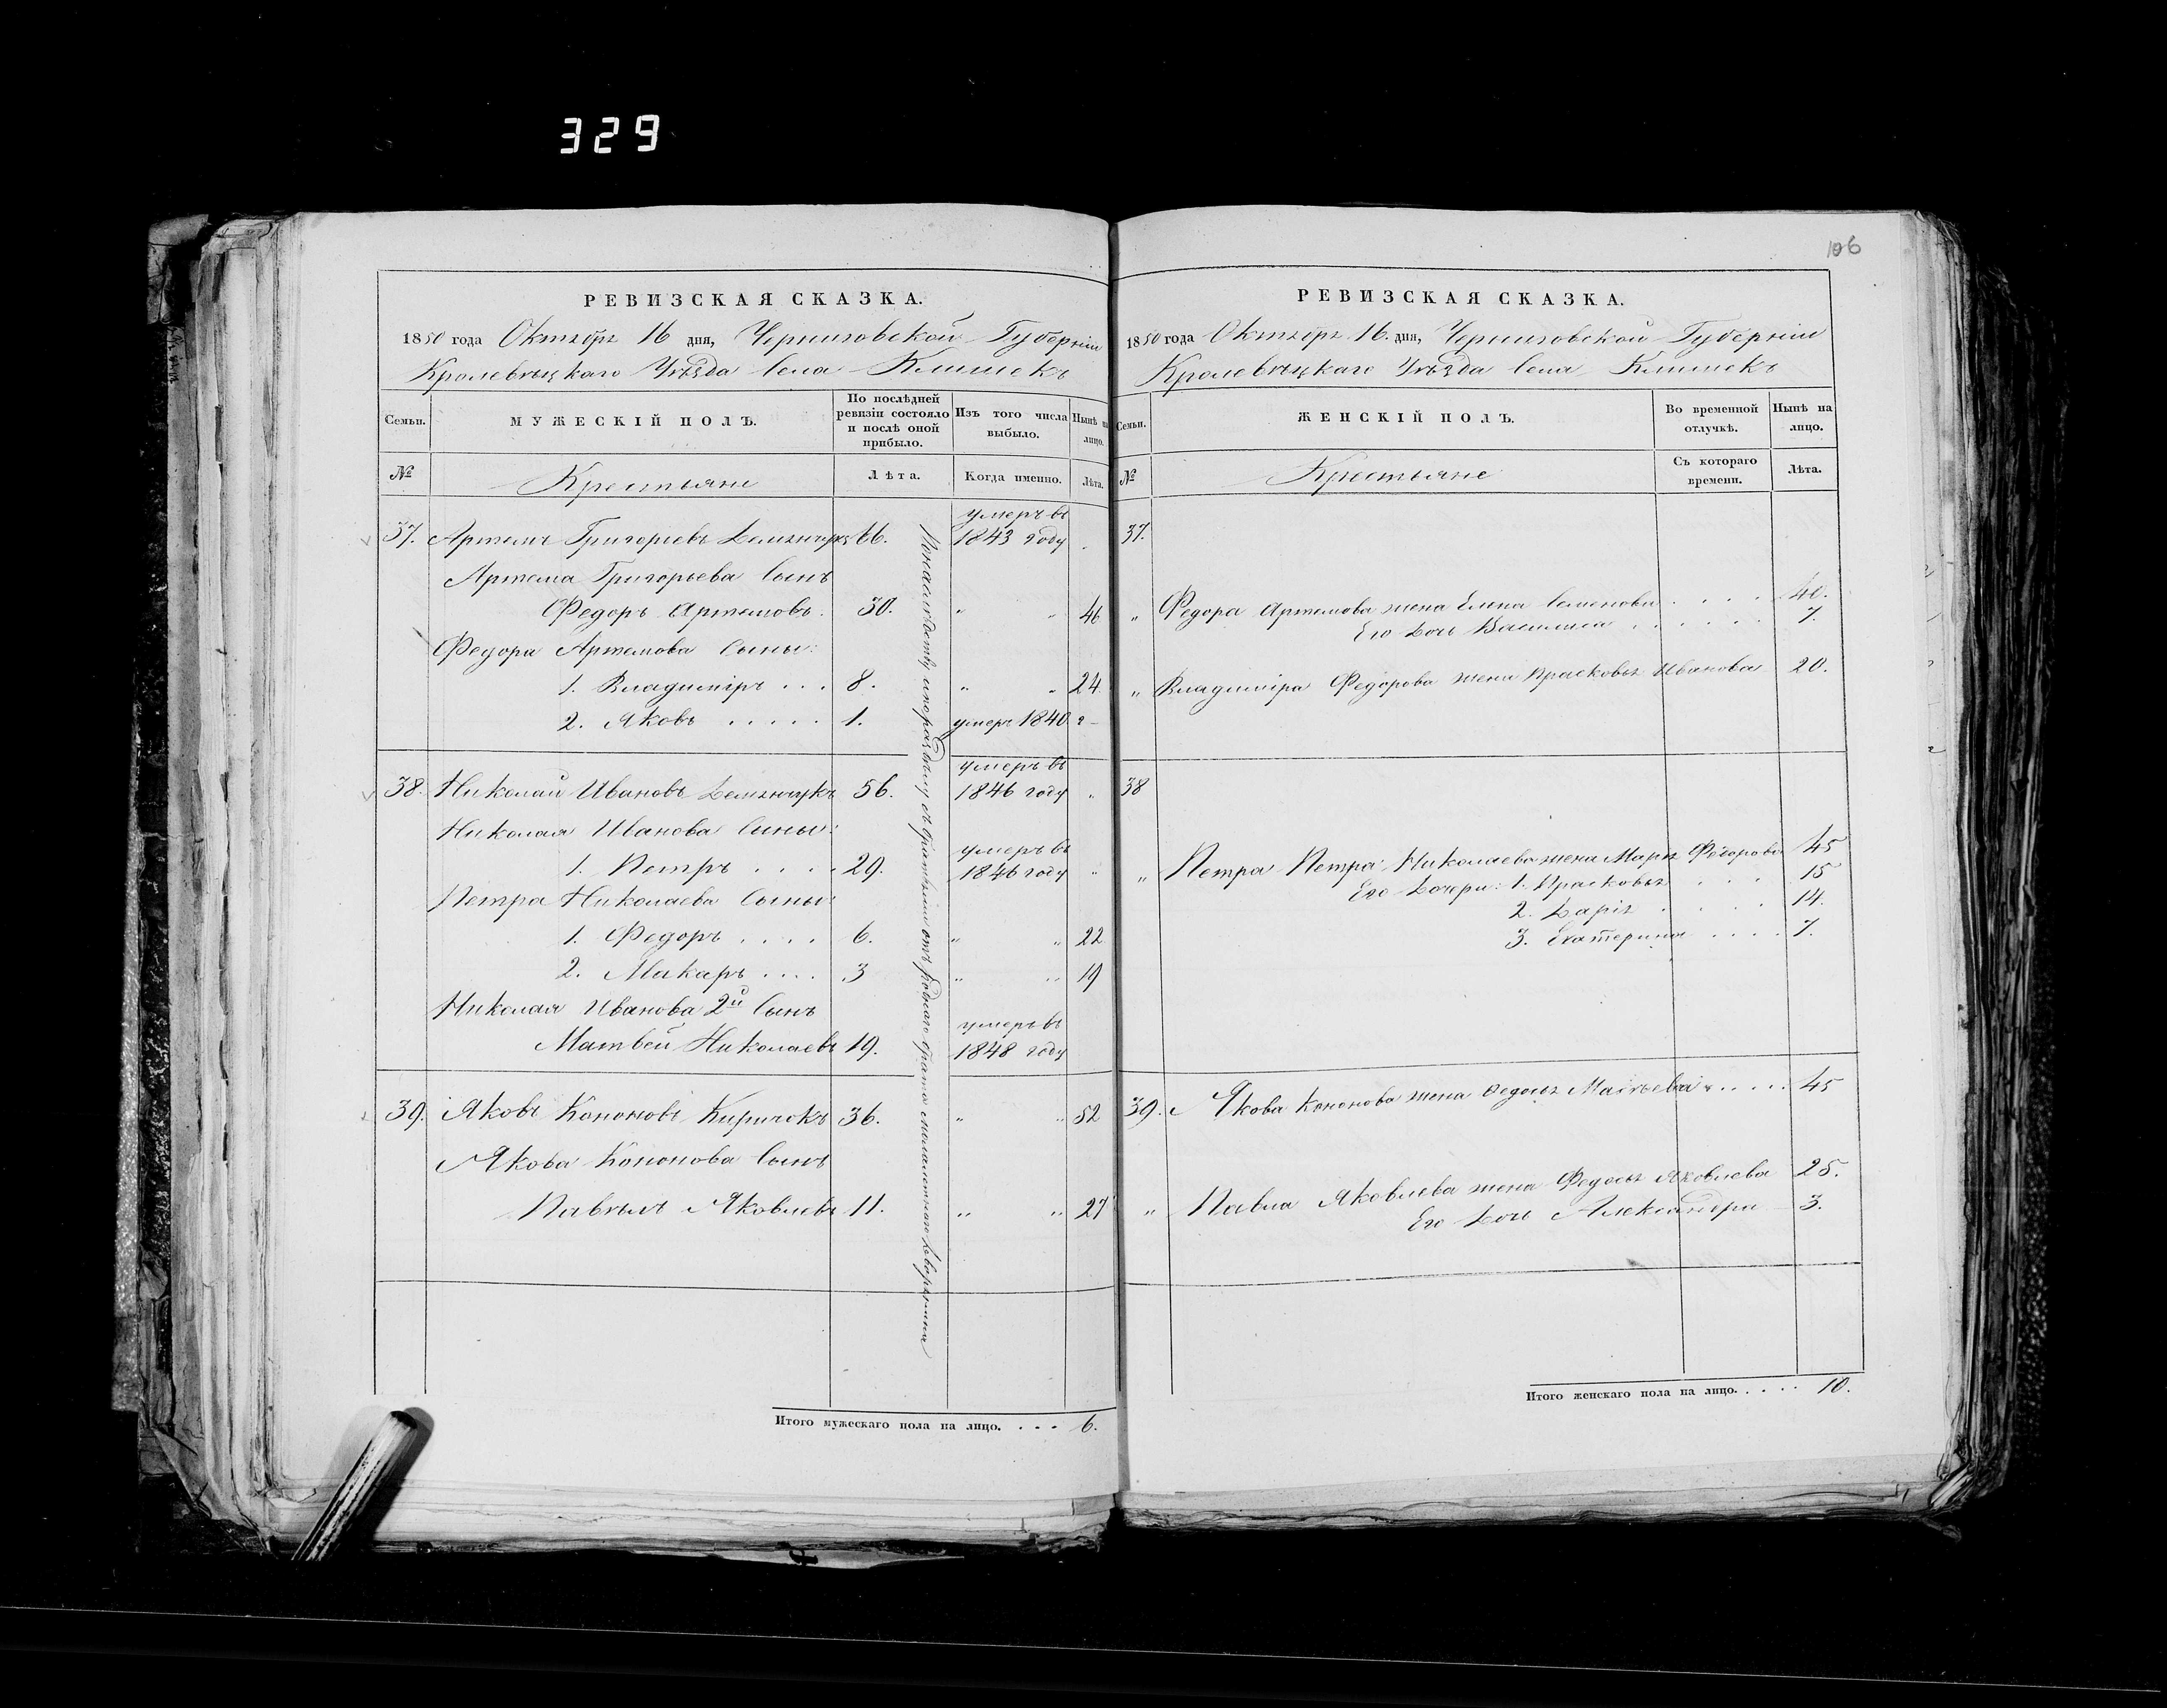 329
106
РЕВИЗСКАЯ СКАЗКА.
1850 года Октября 16 дня, Черниговской Губерніи
Кролевецкаго Уѣзда Села Клишекъ
Семьи.
МУЖЕСКІЙ ПОЛЪ.
По послѣдней ревизіи состояло и послѣ оной прибыло.
Изъ того числа выбыло.
Нынѣ на лицо.
№
Крестьяне
Лѣта.
Когда именно.
Лѣта.
умеръ въ
37. Артемъ Григорьевъ 66. 1843 году
Артема Григорьева Сынъ
Федоръ Артемовъ. 30. " " 46
Федора Артемова Сыны:
1. Владиміръ . . . 8. " " 24
2. Яковъ . . . . . 1. умеръ 1840 г
умеръ въ
38. Николай Ивановъ 56. 1846 году "
Николая Иванова Сыны:
умеръ въ
1. Петръ . . . . 29. 1846 году "
Петра Николаева Сыны:
1. Федоръ . . . . 6. " " 22
2. Макаръ . . . . 3 " " 19
Николая Иванова 2й Сынъ
умеръ въ
Матвей Николаевъ 19. 1848 году
39. Яковъ Кононовъ Киричокъ 36. " " 52
Якова Кононова Сынъ
Павелъ Яковлевъ 11. " " 27
По наслѣдству и по раздѣлу съ братьями отъ роднаго брата
Итого мужескаго пола на лицо. . . . 6.
РЕВИЗСКАЯ СКАЗКА.
1850 года Октября 16. дня, Черниговской Губерніи
Кролевецкаго Уѣзда Села Клишекъ
Семьи.
ЖЕНСКІЙ ПОЛЪ.
Во временной отлучкѣ.
Нынѣ на лицо.
№
Крестьяне
Съ котораго времени.
Лѣта.
37.
" Федора Артемова жена Елена Семенова . . . . 40.
Его Дочь Василиса . . . . . . 7.
" Владиміра Федорова жена Прасковья Иванова 20.
38
" Петра Петра Николаева жена Марья Федорова 45
Его Дочери: 1. Прасковья . . . 15
2. Дарья . . . . 14.
3. Екатерина . . . . 7.
39. Якова Кононова жена Федосья Матвеева . . . . 45
" Павла Яковлева жена Федосья Яковлева 25.
Его Дочь Александра 3.
Итого женскаго пола на лицо. . . . . 10.